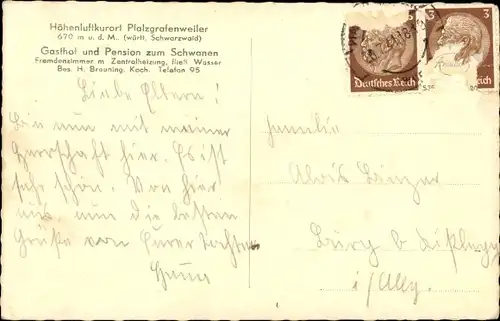 Höhenluftkurort Pfalzgrafenweiler
670 m u. d. M. (württ. Schwarzwald)
Gasthof und Pension zum Schwanen
Fremdenzimmer m Zentralheizung, fließt Wasser
Bes. H. Brauning, Koch. Telefon 95
Liebe Eltern!
Bin nun mit meiner
Herrschaft hier. Es ist
sehr schön. Von hier
aus nun die besten
Grüße von Eurer Tochter
3
Deutsches Reich
Familie
Alois
Burg b
i/Allg.